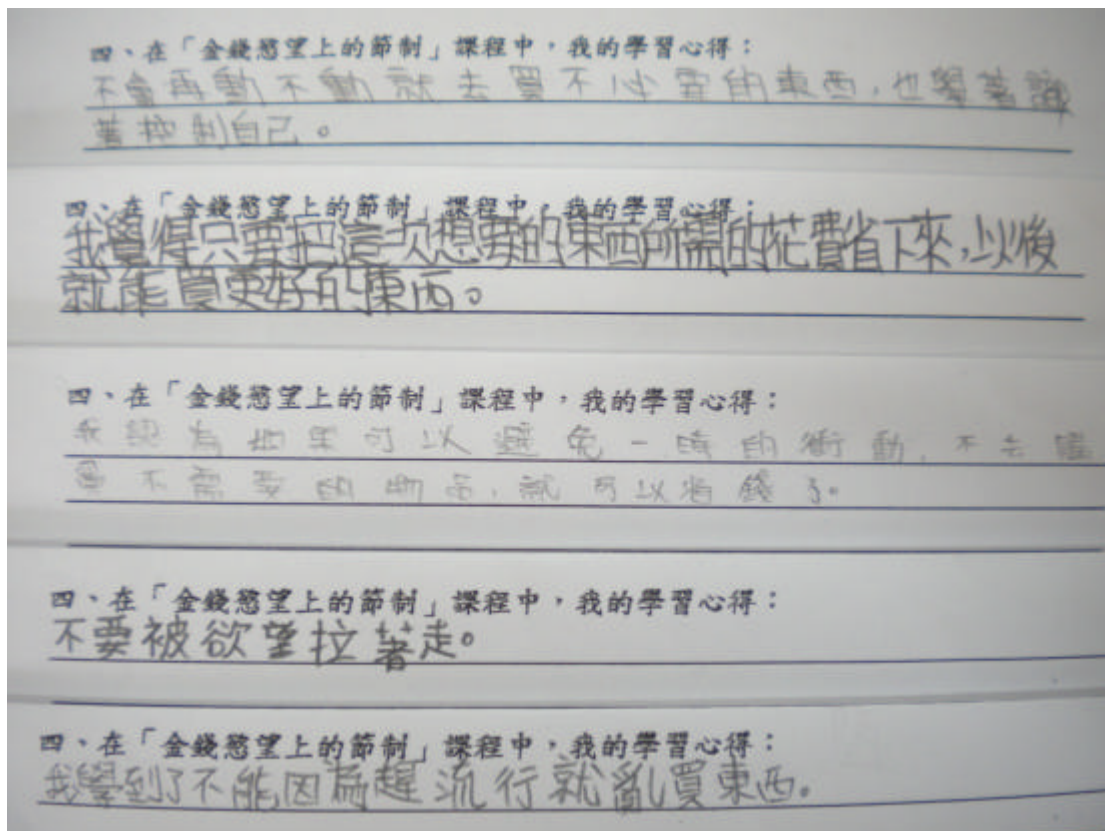 四、在「金錢慾望上的節制」課程中，我的學習心得：
不會再動不動就去買不必要的東西，也學著
著控制自己。
四、在「金錢慾望上的節制」課程中，我的學習心得：
我覺得只要把這次想要的東西所需的花費省下來，以後
就能買更好的東西。
四、在「金錢慾望上的節制」課程中，我的學習心得：
我認為如果可以避免一時的衝動，不去
買不需要的物品，就可以省錢了。
四、在「金錢慾望上的節制」課程中，我的學習心得：
不要被欲望拉著走。
四、在「金錢慾望上的節制」課程中，我的學習心得：
我學到了不能因為趕流行就亂買東西。